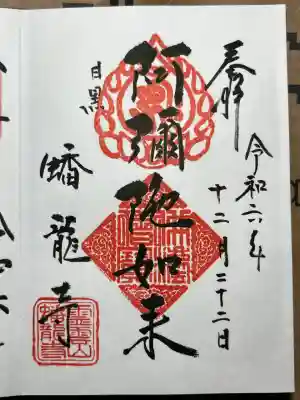 奉拝
令和六年
十二月二十二日
目黒
阿彌陀如来
蟠龍寺